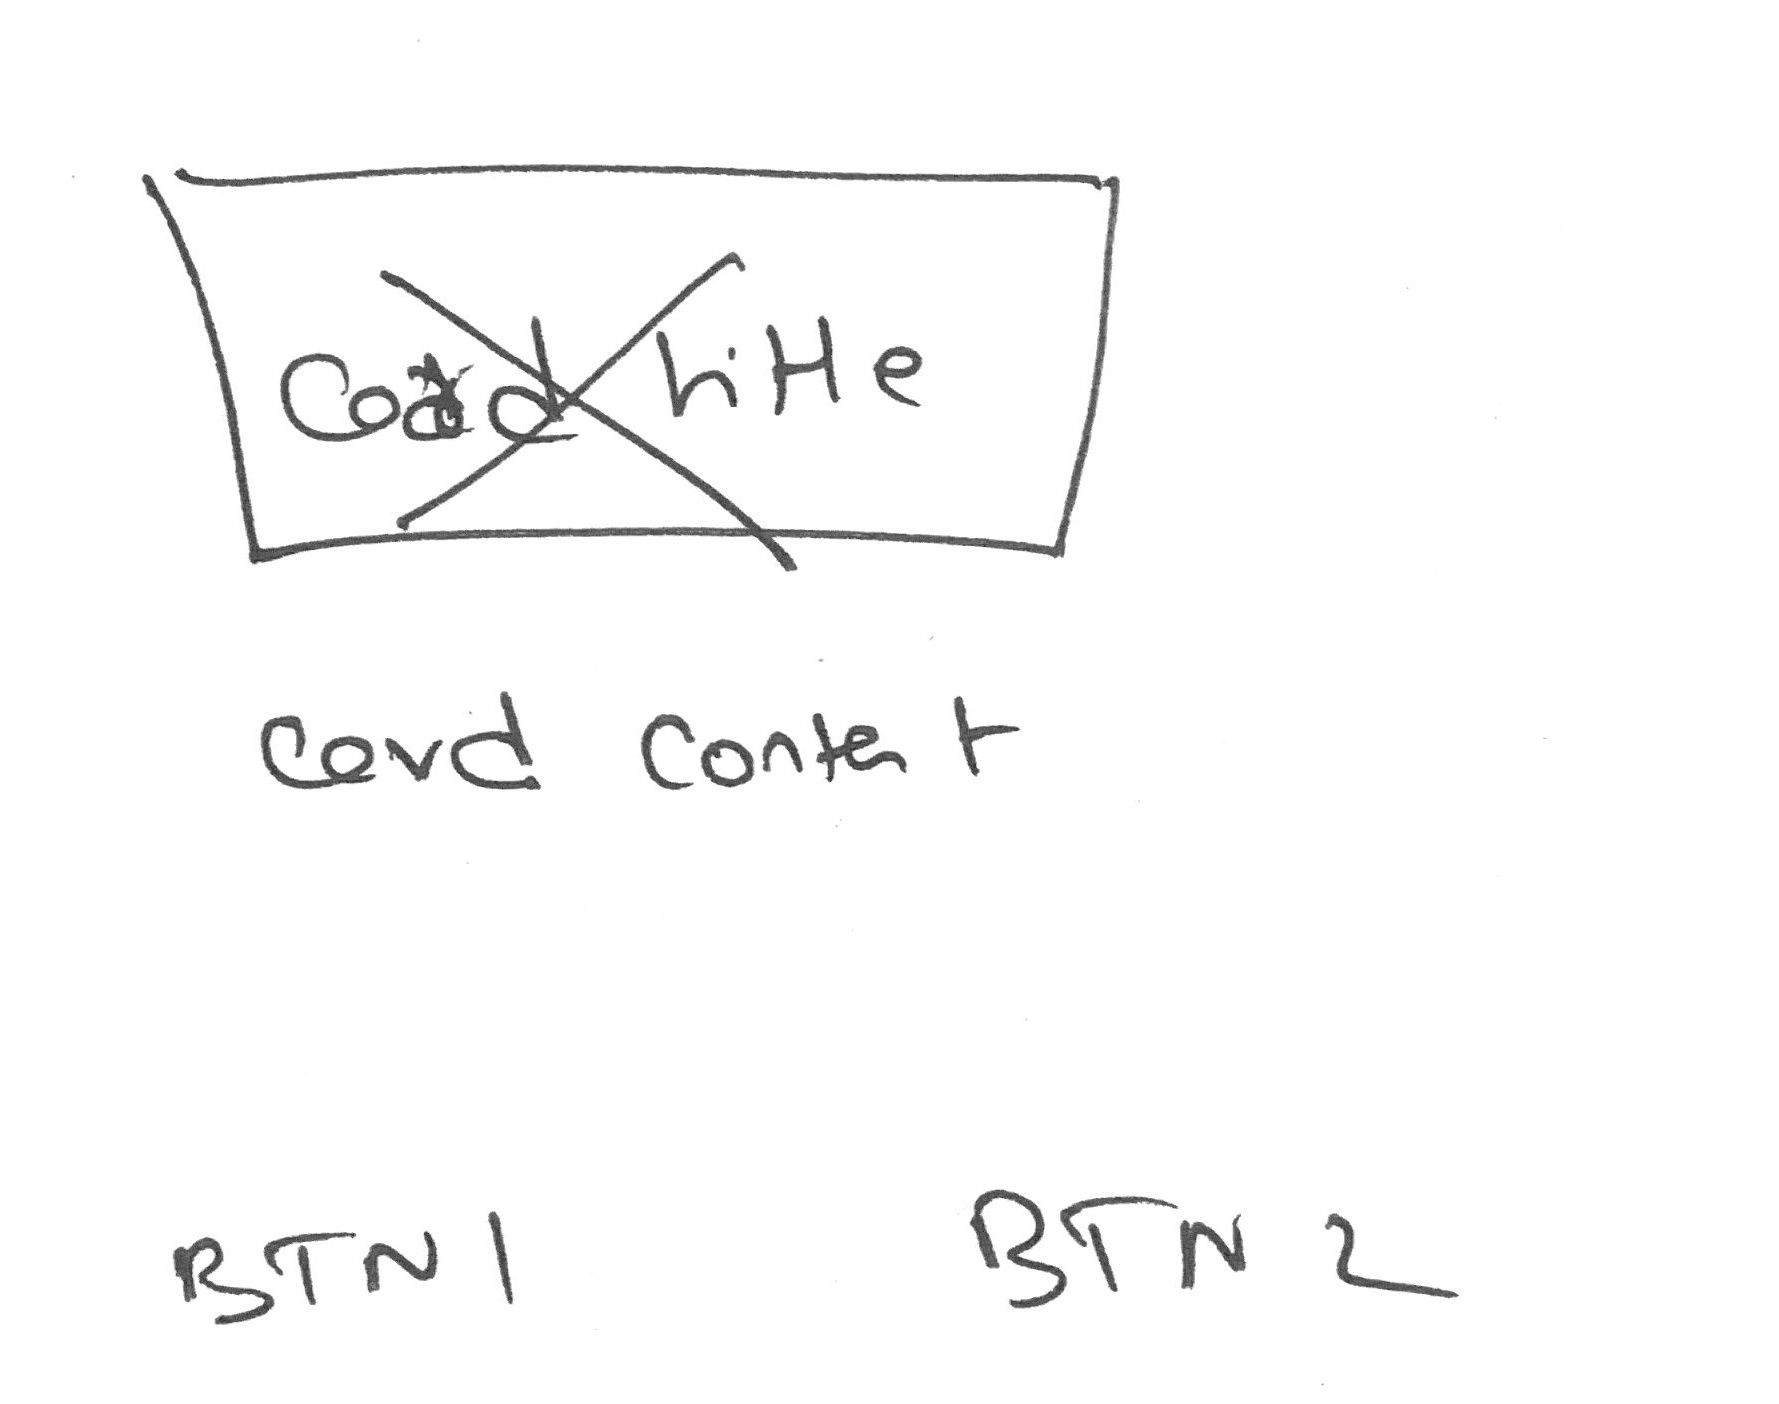 Card title
Card Content
BTN 1 BTN 2